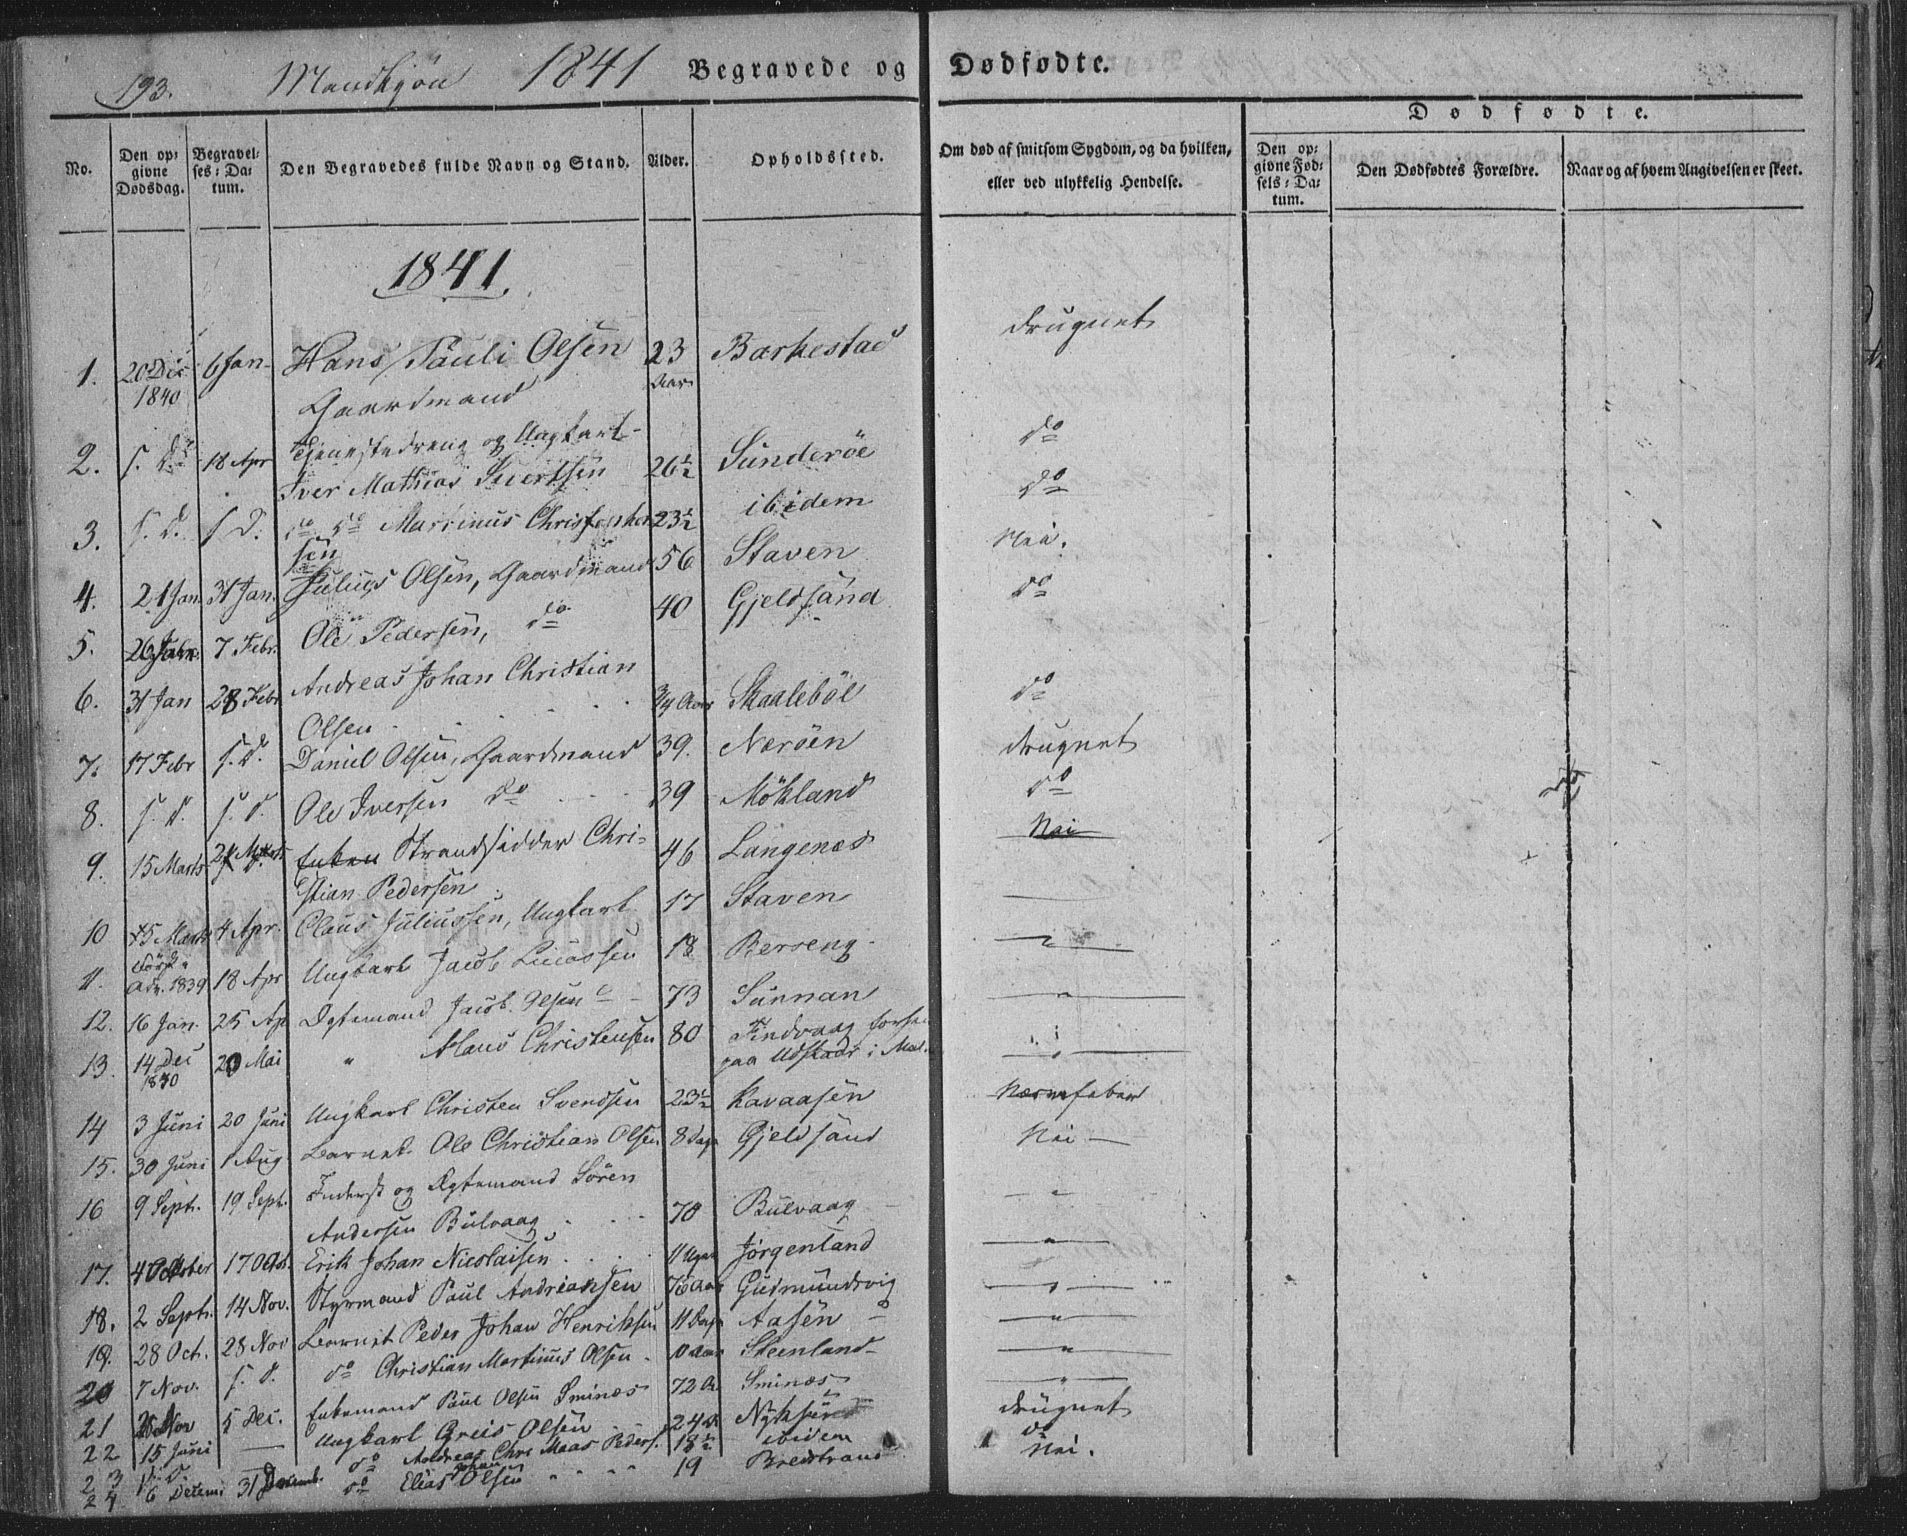 193. Mandkjøn 1841 Begravede og Dødfødte.
No.
Den opgivne Dødsdag.
Begravelses-Datum.
Den Begravedes fulde Navn og Stand.
Alder.
Opholdssted.
Om død af smitsom Sygdom, og da hvilken, eller ved ulykkelig Hendelse.
Dødfødte.
Den opgivne Fødsels-Datum.
Den Dødfødtes Forældre.
Naar og af hvem Angivelsen er skeet.
1841.
1. 20 Dec 1840 6 Jan Hans Pauli Olsen 23 Aar Barkestad druknet
Gaardmand
2. s. D. 18 Apr Tjenestedreng og Ungkarl
Iver Mathias Sivertsen 26½ Sunderöe do
3. s. D. s. D. do do Martinus Christopher 23½ ibidem do
sen
4. 21 Jan. 31 Jan. Julius Olsen, Gaardmand 56 Staven Nei.
5. 26 7 Febr. Ole Pedersen, do 40 Gjeldsand do
6. 31 Jan 28 Febr Andreas Johan Christian
Olsen ¾ Aar Skaaleböl do
7. 17 Febr s. D. Daniel Olsen, Gaardmand 39. Nærøen druknet
8. s. D. s. D. Ole Iversen do 39 Mökland do
9. 15 Marts Enken Strandsidder Chri-
stian Pedersen 46 Langenæs Nei
10 15 Marts 4 Apr. Claus Juliussen, Ungkarl 17 Staven
11. Adv. 1839 18 Apr Ungkarl Jacob Lucassen 18 Berseng
12. 16 Jan. 25 Ap Ægtemand Jacob Olsen 73 Sunnan
13. 14 Dec 1840 20 Mai " Klaus Christensen 80 Findvaag
paa Udskaar i
14 3 Juni 20 Juni Ungkarl Christen Svendsen 23½ Kavaasen Nervefeber
15. 30 Juni 1 Aug Barnet Ole Christian Olsen 8 Dage Gjeldsand Nei
16 9 Sept. 19 Sept. Inderst og Ægtemand Sören
Andersen Bulvaag 70 Bulvaag
17. 4 October 17 Oct. Erik Johan Nicolaisen 11 Uger Jørgenland
18. 2 Septr. 14 Nov. Styrmand Paul Andreassen 76 Aar Gudmundsvig
19. 28 Oct. 28 Nov Barnet Peder Johan Henriksen 11 Dage Aasen
20 7 Nov. s. D. do Christian Martinus Olsen Steenland
21 Nov 5 Dec. Enkemand Paul Olsen Sminæs 72 Sminæs
22 15 Juni Ungkarl Greis Olsen 24 Nyksund druknet
23 s. D do Andreas Chr. Maas Peders. 18½ ibidem do
24 6 Decem 31 Decemb. do Elias Johan Olsen 19 Bredstrand Nei.